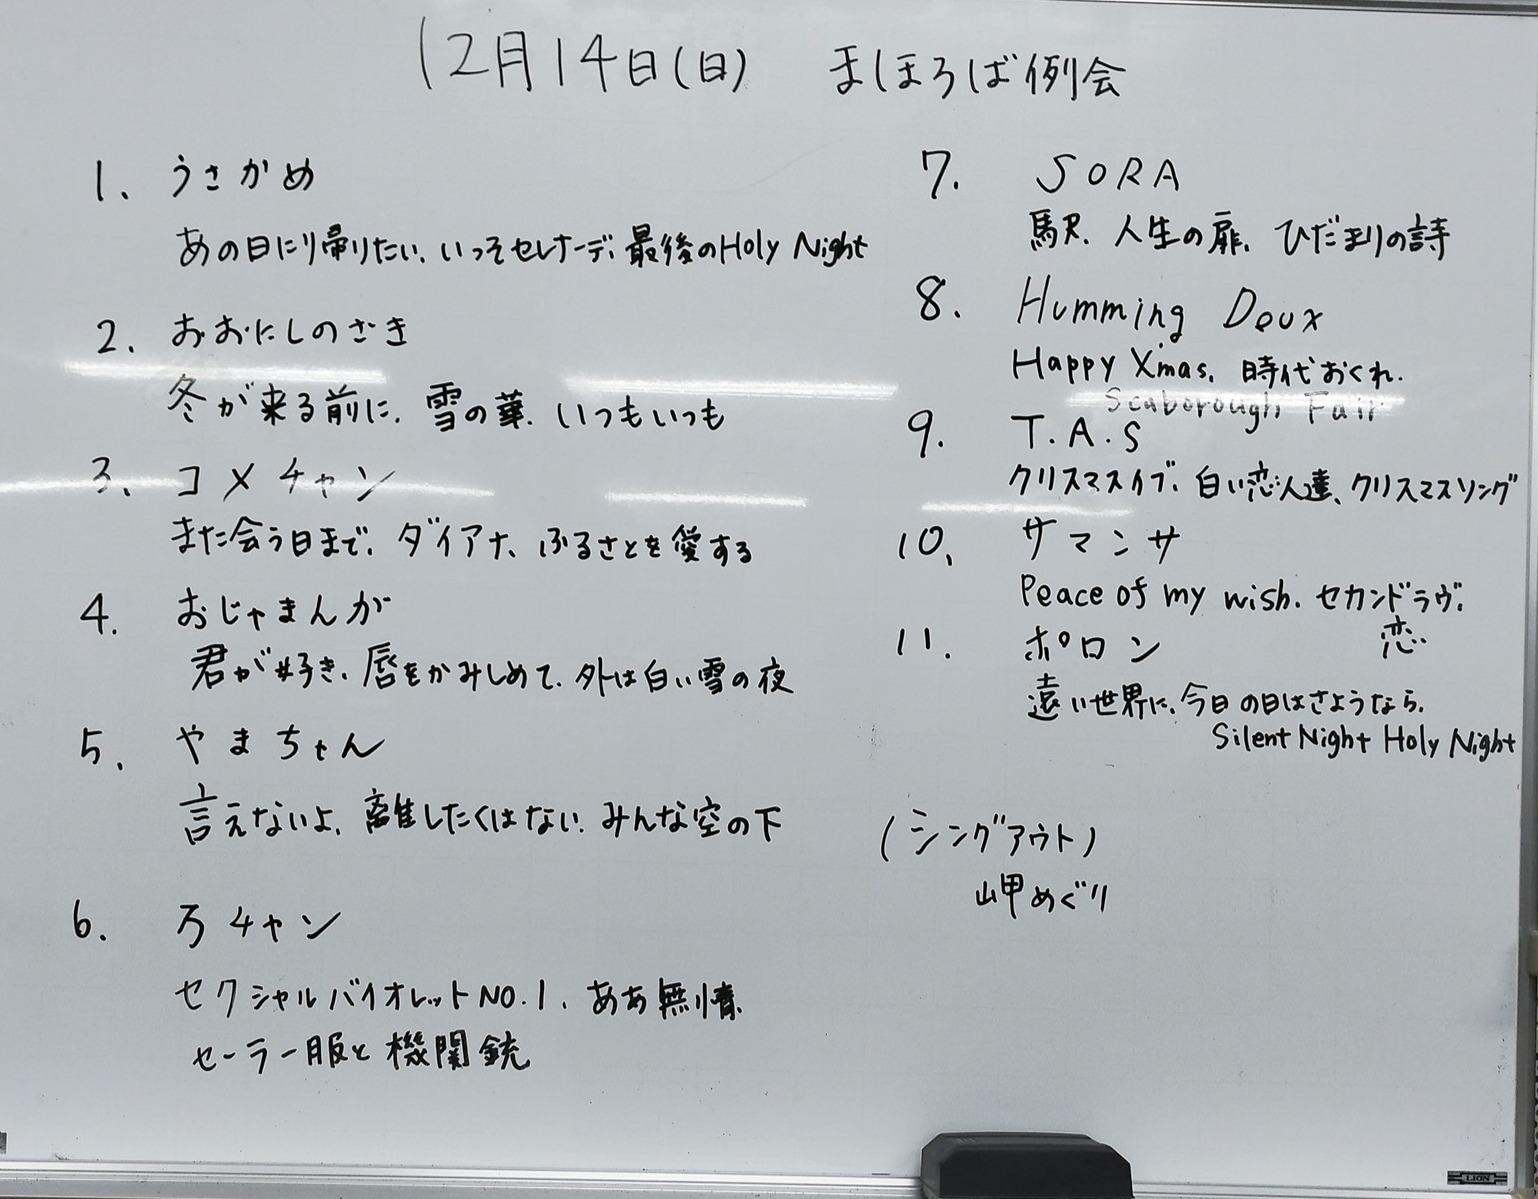 12月14日(日) まほろば例会
1. うさかめ
あの日にり帰りたい、いっそセレナーデ、最後のHoly Night
2. おおにしのざき
冬が来る前に、雪の華、いつもいつも
3. コメチャン
また会う日まで、ダイアナ、ふるさとを愛する
4. おじゃまんが
君が好き、唇をかみしめて、外は白い雪の夜
5. やまちゃん
言えないよ、離したくはない、みんな空の下
6. 万チャン
セクシャルバイオレットNO.1、ああ無情、
セーラー服と機関銃
7. SORA
駅、人生の扉、ひだまりの詩
8. Humming Doux
Happy Xmas、時代おくれ、
Scaborough Fair
9. T.A.S
クリスマスイブ、白い恋人達、クリスマスソング
10. サマンサ
Peace of my wish、セカンドラヴ、
恋
11. ポロン
遠い世界に、今日の日はさようなら、
Silent Night Holy Night
(シングアウト)
岬めぐり
LION